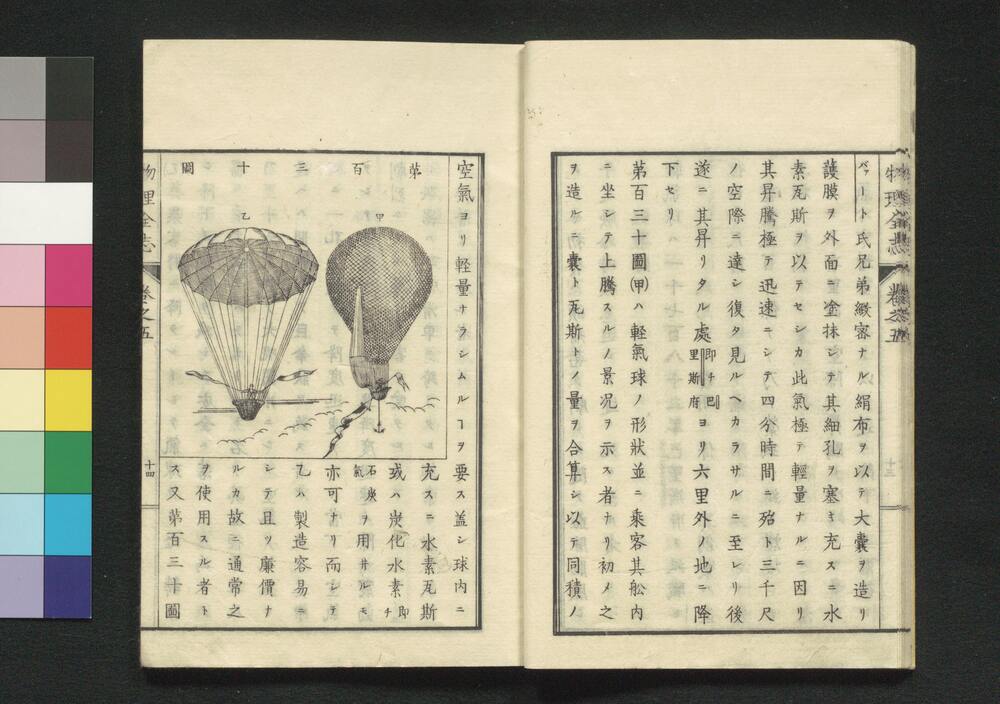 バァート氏兄弟緻密ナル絹布ヲ以テ大囊ヲ造リ
護膜ヲ外面ニ塗抹シテ其細孔ヲ塞キ充スニ水
素瓦斯ヲ以テセシカ此氣極テ輕量ナルニ因リ
其昇騰極テ迅速ニシテ四分時間ニ殆ト三千尺
ノ空際ニ達シ復タ見ルヘカラサルニ至レリ後
遂ニ其昇リタル處即チ巴里斯府ヨリ六里外ノ地ニ降
下セリ
第百三十圖(甲)ハ軽氣球ノ形狀並ニ乘客其舩內
ニ坐シテ上騰スルノ景況ヲ示ス者ナリ初メ之
ヲ造ルニ囊ト瓦斯トノ量ヲ合算シ以テ同積ノ
物理全志
卷之五
十三
空氣ヨリ輕量ナラシムルヿヲ要ス盖シ球內ニ
充スニ水素瓦斯
或ハ炭化水素即チ
石炭氣ヲ用井ルモ
亦可ナリ而シテ
乙ハ製造容易ニ
シテ且ツ廉價ナ
ルカ故ニ通常之
ヲ使用スル者ト
ス又第百三十圖
第百三十圖
甲
乙
物理全志
卷之五
十四